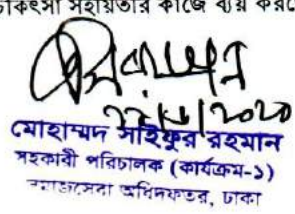 চিকিৎসা সহায়তার কাজে ব্যয় কর
মোহাম্মদ সাইফুর রহমান
সহকারী পরিচালক (কার্যক্রম-১)
সমাজসেবা অধিদফতর, ঢাকা